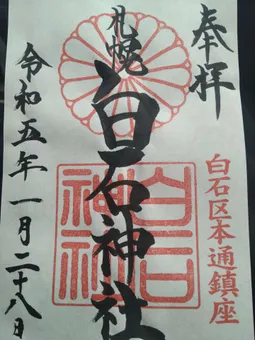 奉拝
白石区本通鎮座
札幌
白石神社
白石
神社
令和五年一月二十八日